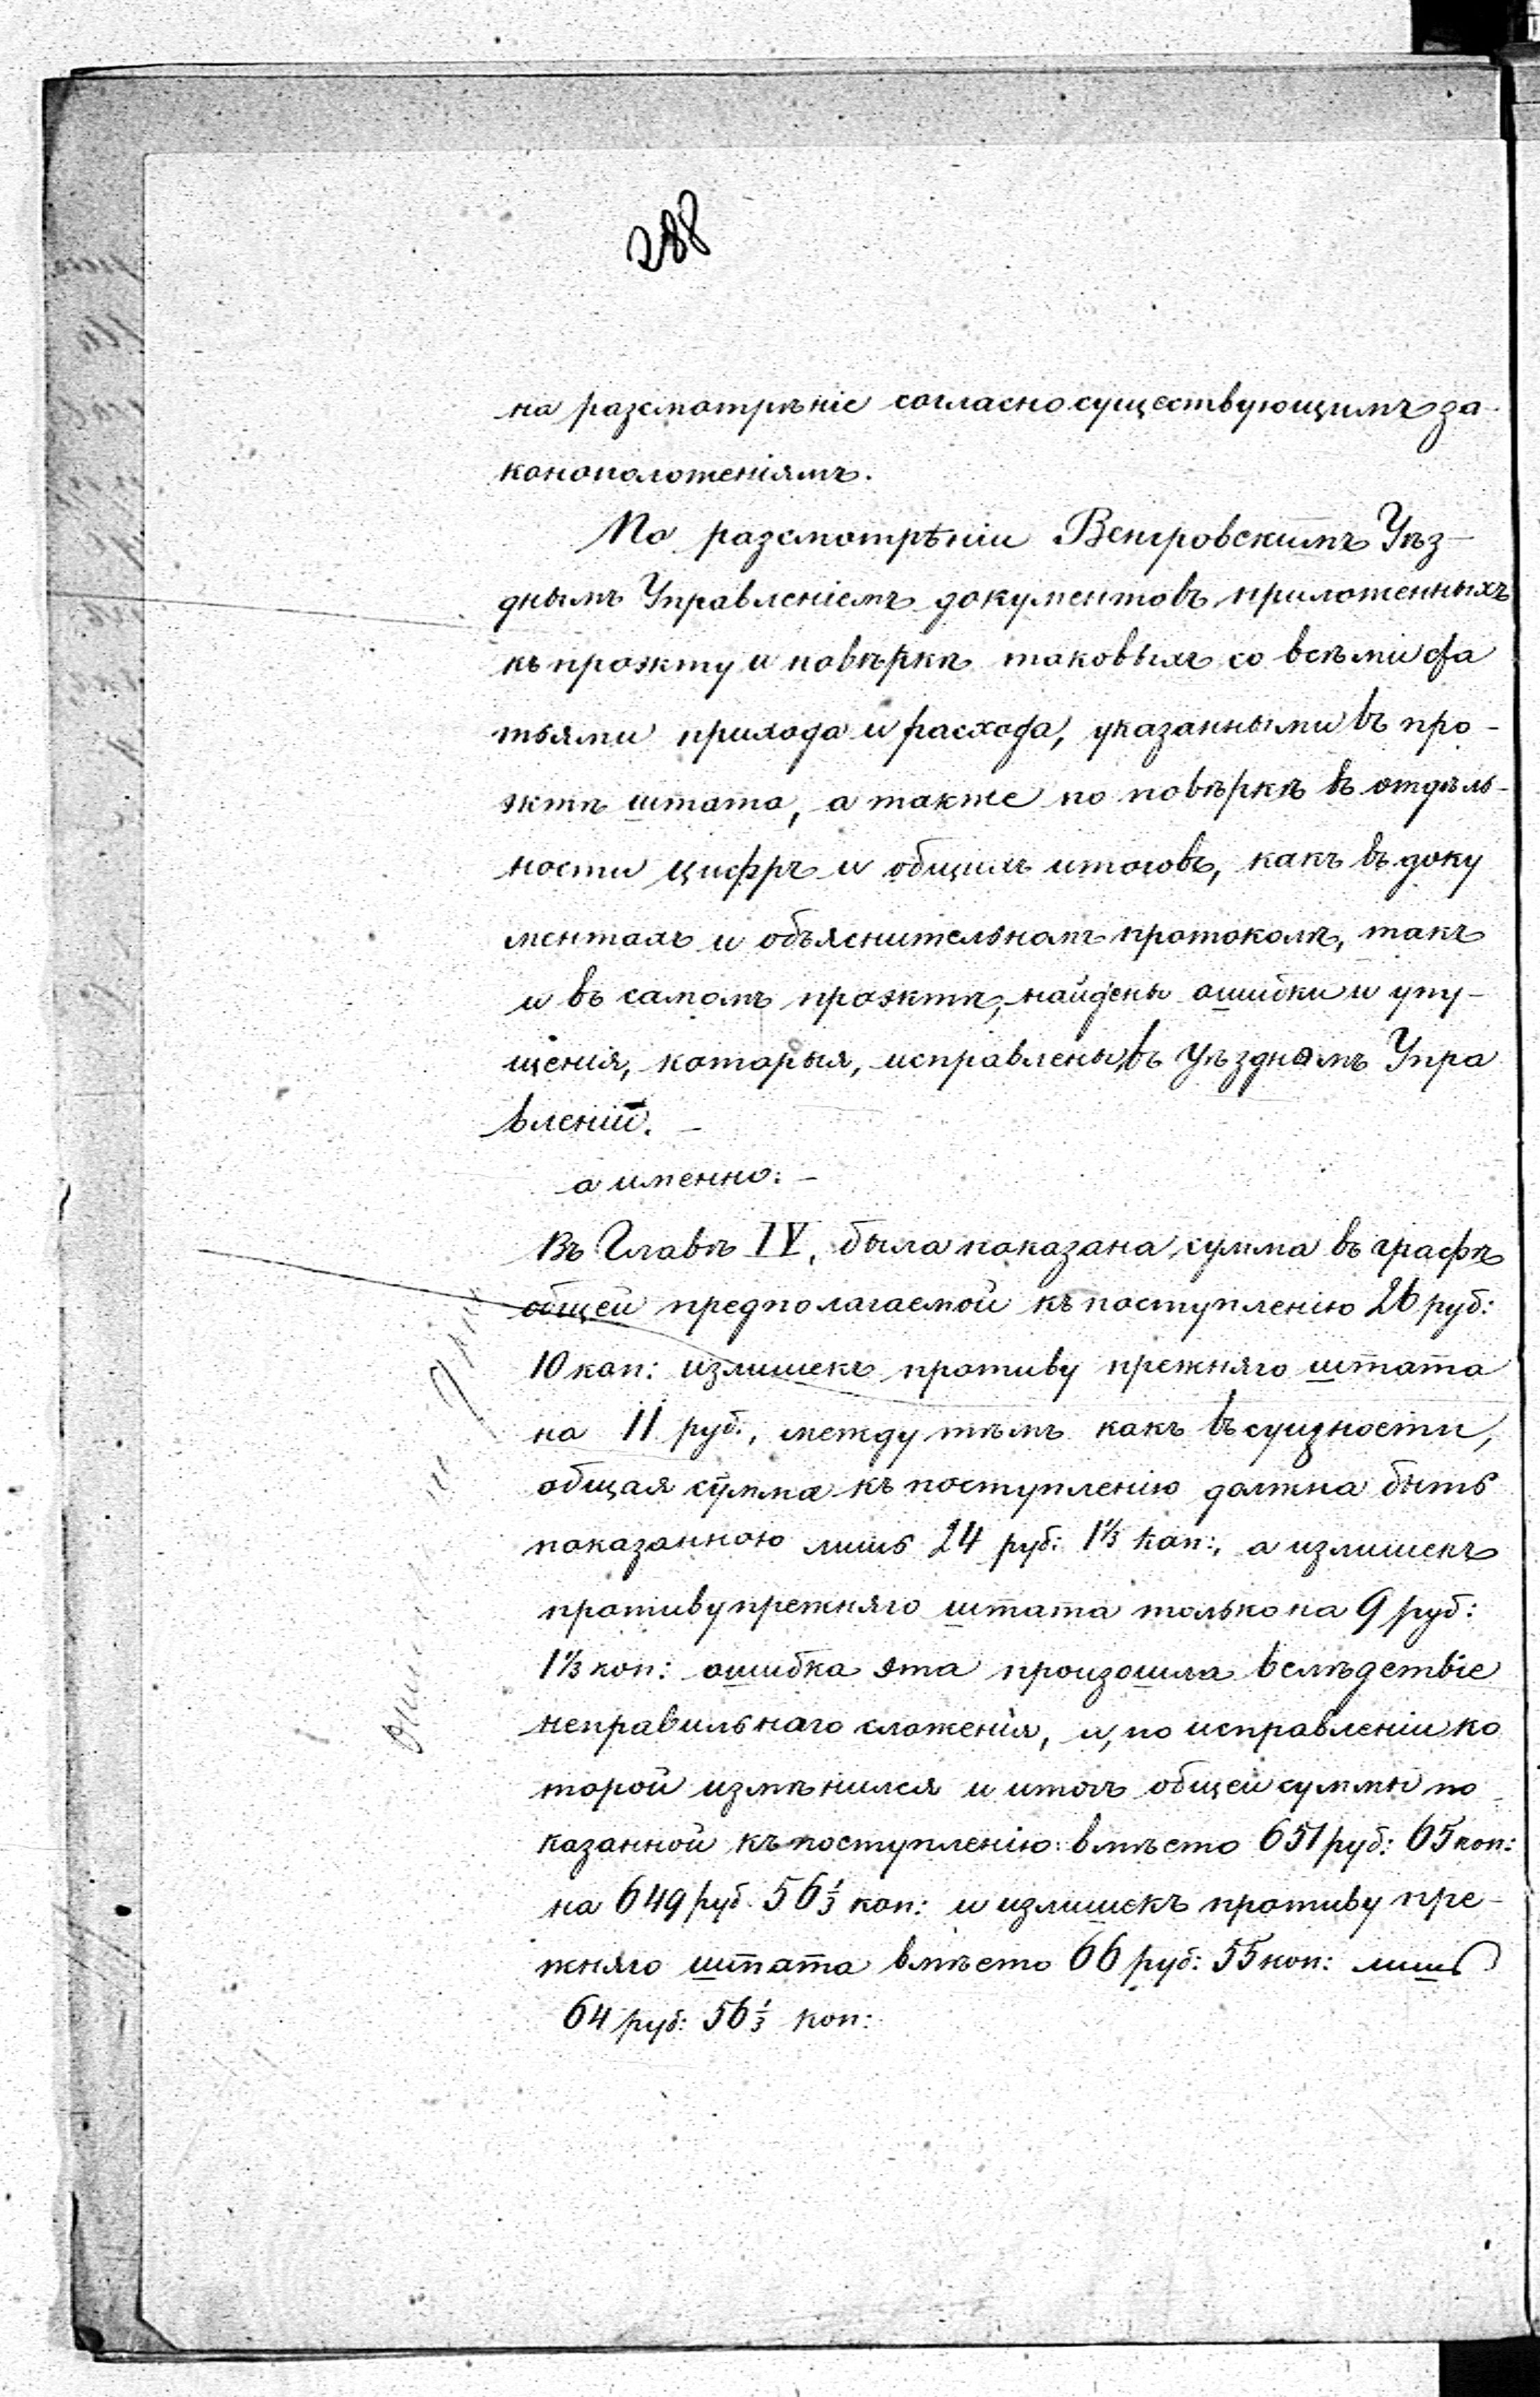 288
на разсмотрѣніе согласно существующимъ за-
коноположеніямъ.
По разсмотрѣніи Венгровскимъ Уѣз-
днымъ Управленіемъ документовъ приложенныхъ
къ проэкту и повѣркѣ таковыхъ со всѣми ста
тьями прихода и расхода, указанными въ про-
эктѣ штата, а также по повѣркѣ въ отдѣль-
ности цифръ и общихъ итоговъ, какъ въ доку
ментахъ и объяснительномъ протоколѣ, такъ
и въ самомъ проэктѣ, найдены ошибки и упу-
щенія, которыя, исправлены въ Уѣздномъ Упра
вленіи. –
а именно: –
Въ Главѣ IV, была показана сумма въ графѣ
общей предполагаемой къ поступленію 26 руб:
10 коп: излишекъ противу прежняго штата
на 11 руб., между тѣмъ какъ въ сущности,
общая сумма къ поступленію должна быть
показанною лишь 24 руб: 1⅓ коп:, а излишекъ
противу прежняго штата только на 9 руб:
1⅓ коп: ошибка эта произошла вслѣдствіе
неправильнаго сложенія, и, по исправленіи ко
торой измѣнился и итогъ общей суммы по-
казанной къ поступленію: вмѣсто 651 руб: 65 коп:
на 649 руб. 56⅓ коп: и излишекъ противу пре-
жняго штата вмѣсто 66 руб: 55 коп: лишь
64 руб: 56⅓ коп: